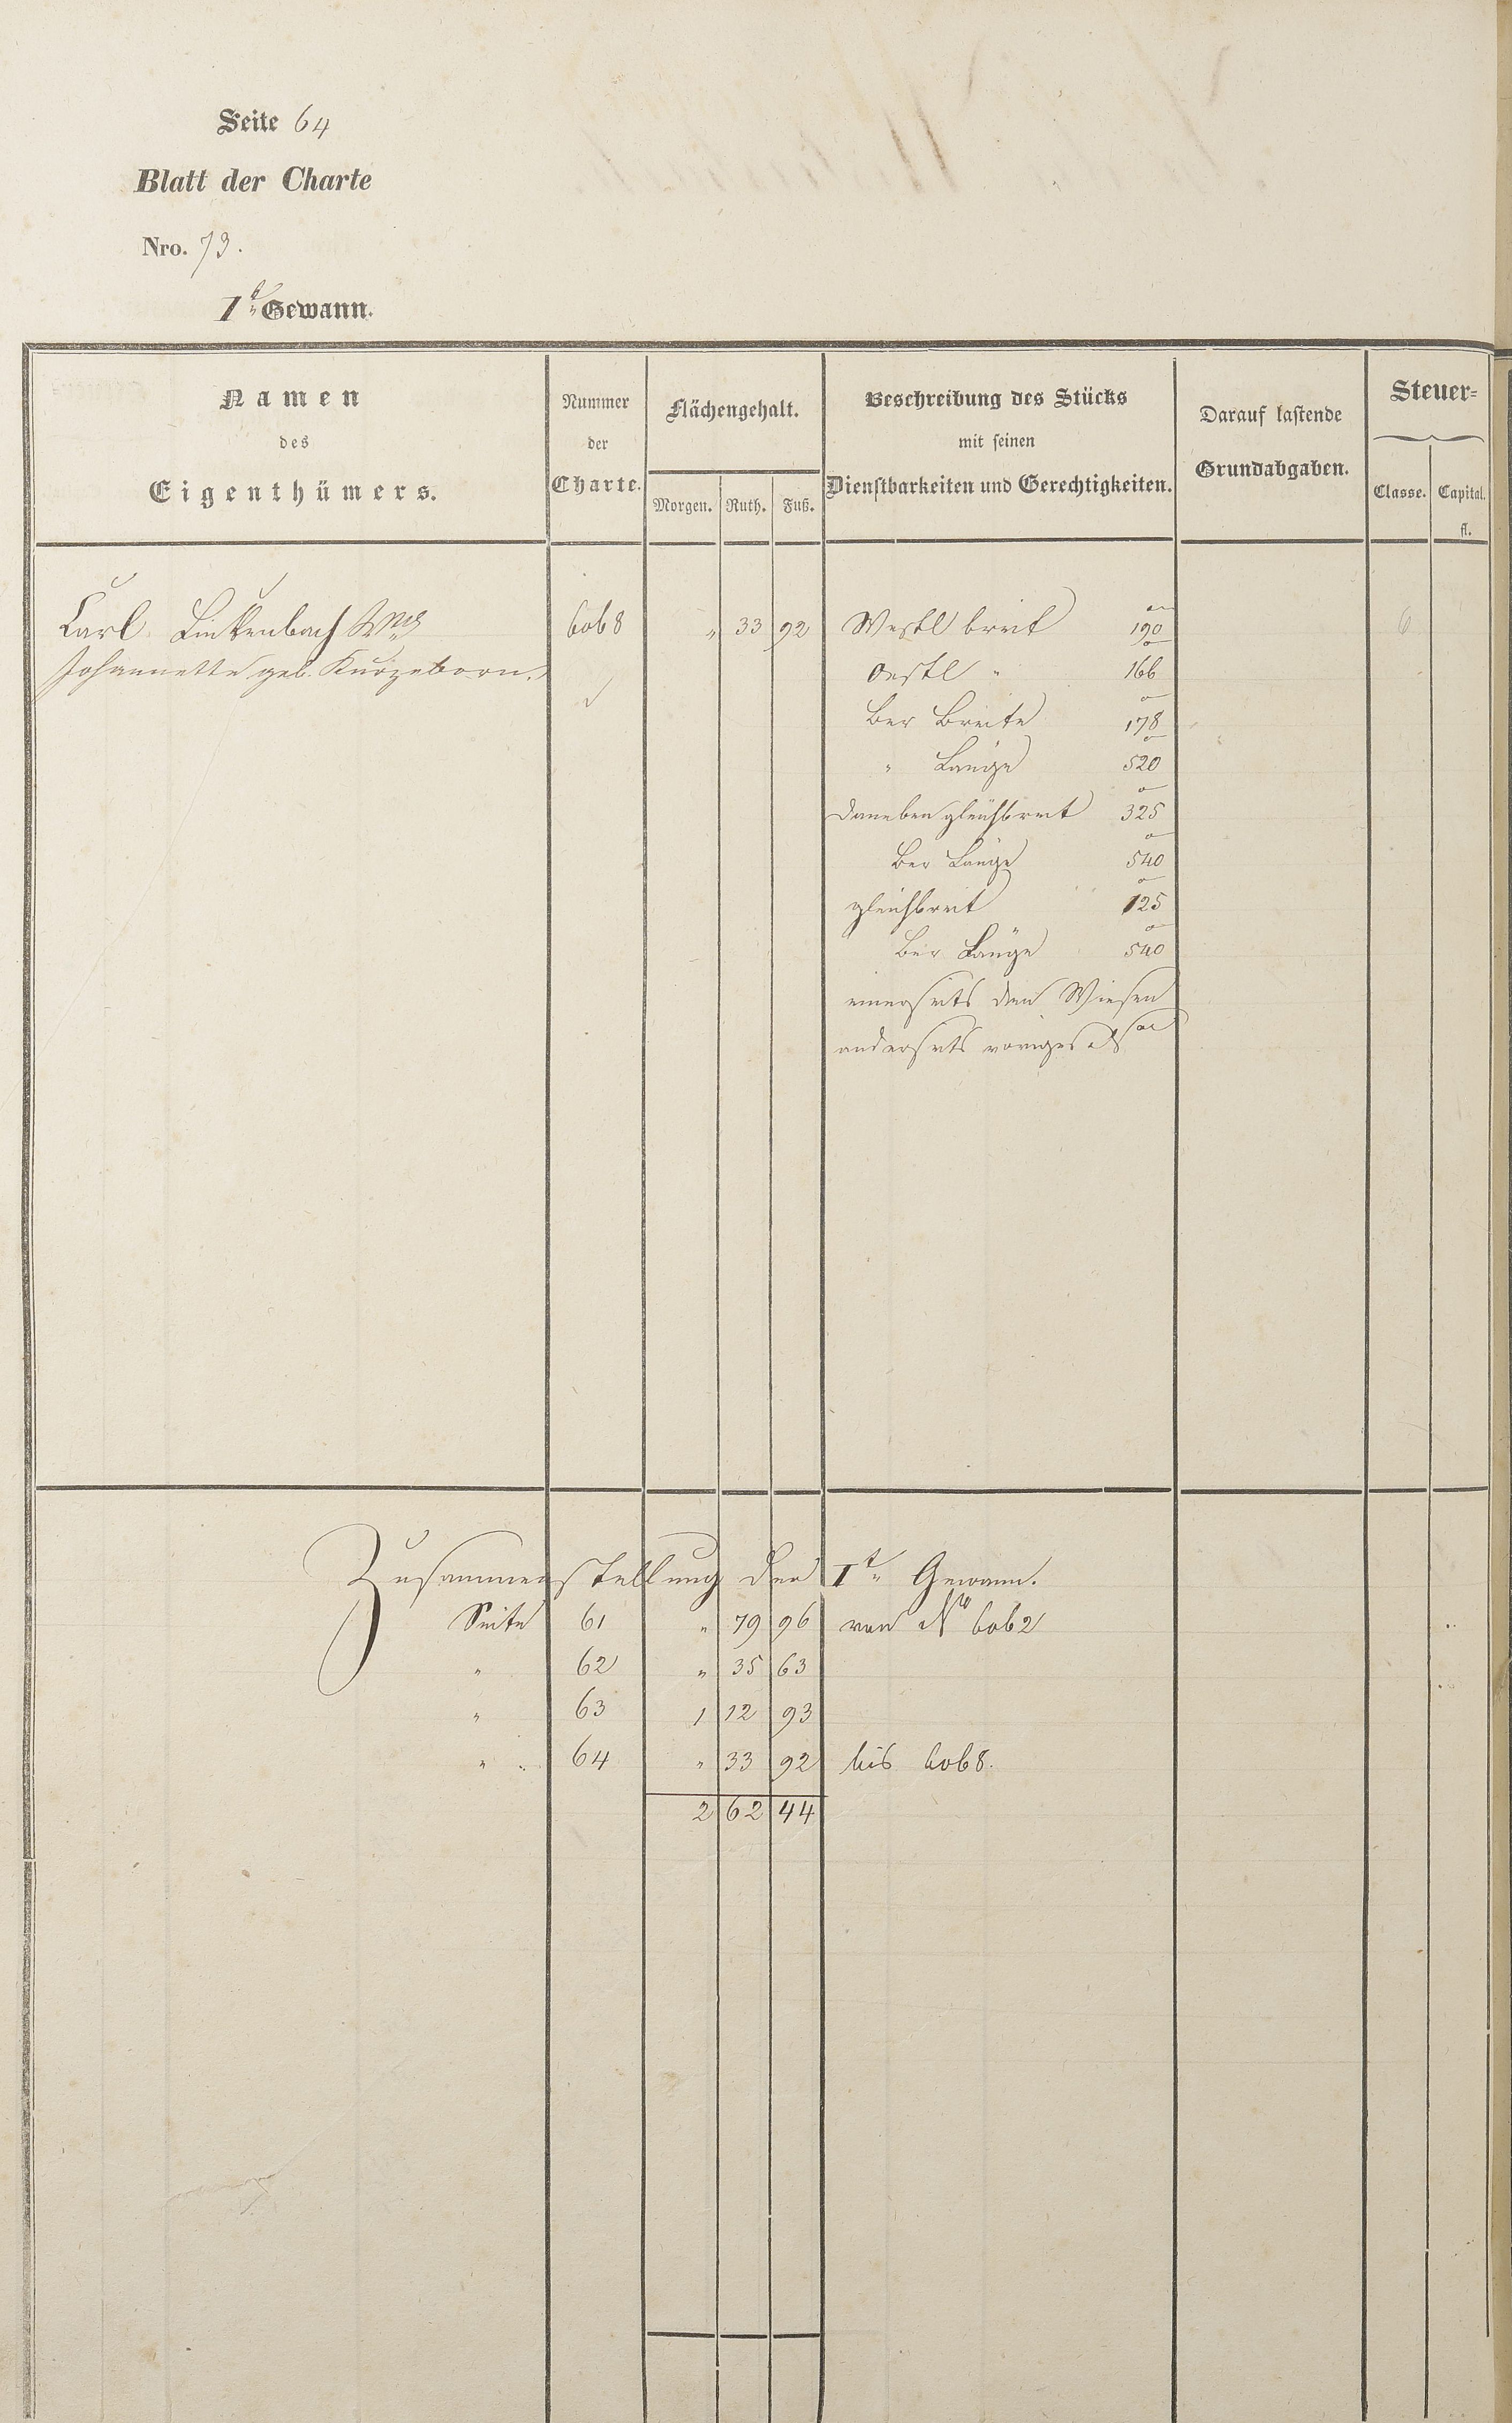 Seite 64
Blatt der Charte
Nro. 73.
1t Gewann.
Namen des Eigenthümers.
Nummer der Charte.
Flächengehalt.
Morgen. Ruth. Fuß.
Beschreibung des Stücks mit seinen Dienstbarkeiten und Gerechtigkeiten.
Darauf lastende Grundabgaben.
Steuer=
Classe. Capital. fl.
Carl Linkenbach Wwe 6068 " 33 92 Westl breit 190 6
Johannette geb. Kurzeborn. Oestl " 166
Ber Breite 178
" Länge 520
daneben gleichbreit 325
Ber Länge 540
gleichbreit 125
Ber Länge 540
einerseits den Wiesen
anderseits voriges
Zusammenstellung der 1t Gewann.
Seite 61 " 79 96 von No 6062
" 62 " 35 63
" 63 1 12 93
" 64 " 33 92 bis 6068.
2 62 44